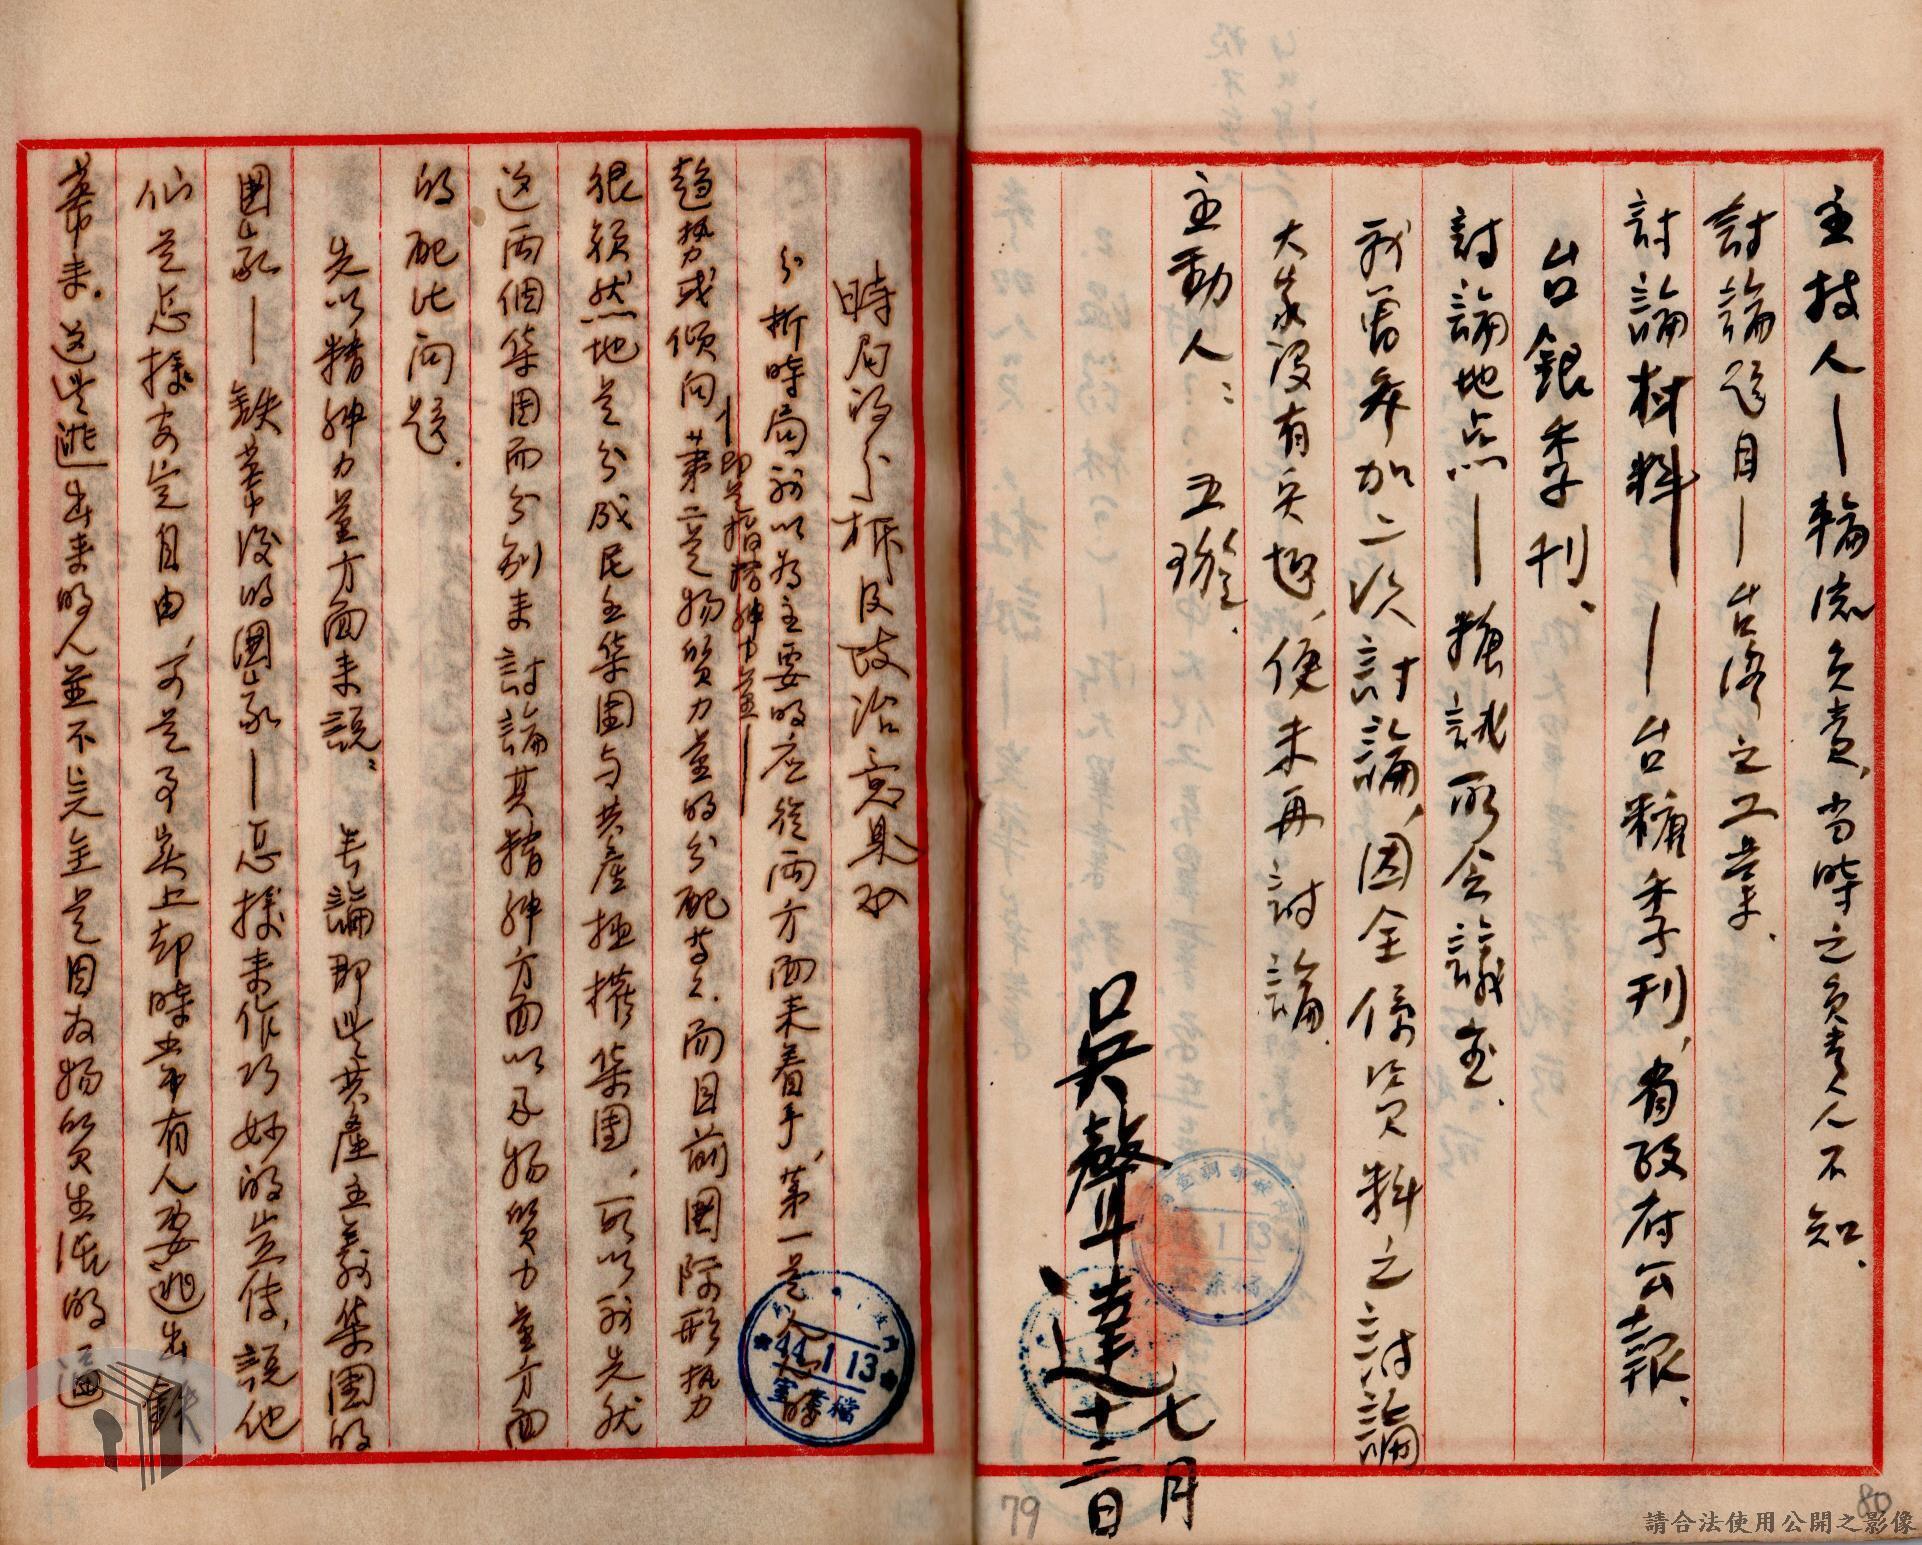 主持人——輪流負責，当時之負責人不知．
討論題目——台湾之工業．
討論材料——台糖季刊，省政府公報．
台銀季刊．
討論地点——糖試所会議室．
我曾參加二次討論，因全係資料之討論
大家沒有兴趣，便未再討論．
主動人：
吳聲達
七月
十三日
79
時局的分析及政治意見
分析時局我以為主要的应從兩方面来着手，第一是人心的
——即是指精神力量——
趨势或傾向，第二是物質力量的分配等々．而目前國际形势
很顯然地是分成民主集團与共産極權集團，所以我先就
这兩個集團而分别来討論其精神方面以及物質力量方面
的配比问題．
先以精神力量方面来説：無論那些共產主義集團的
國家——鉄幕後的國家——怎樣来作巧妙的宣传，說他
们是怎樣安定自由，可是事实上却時常有人要逃出鉄
幕来．这些逃出来的人並不完全是因为物質生活的逼
44.1.13
80
請合法使用公開之影像